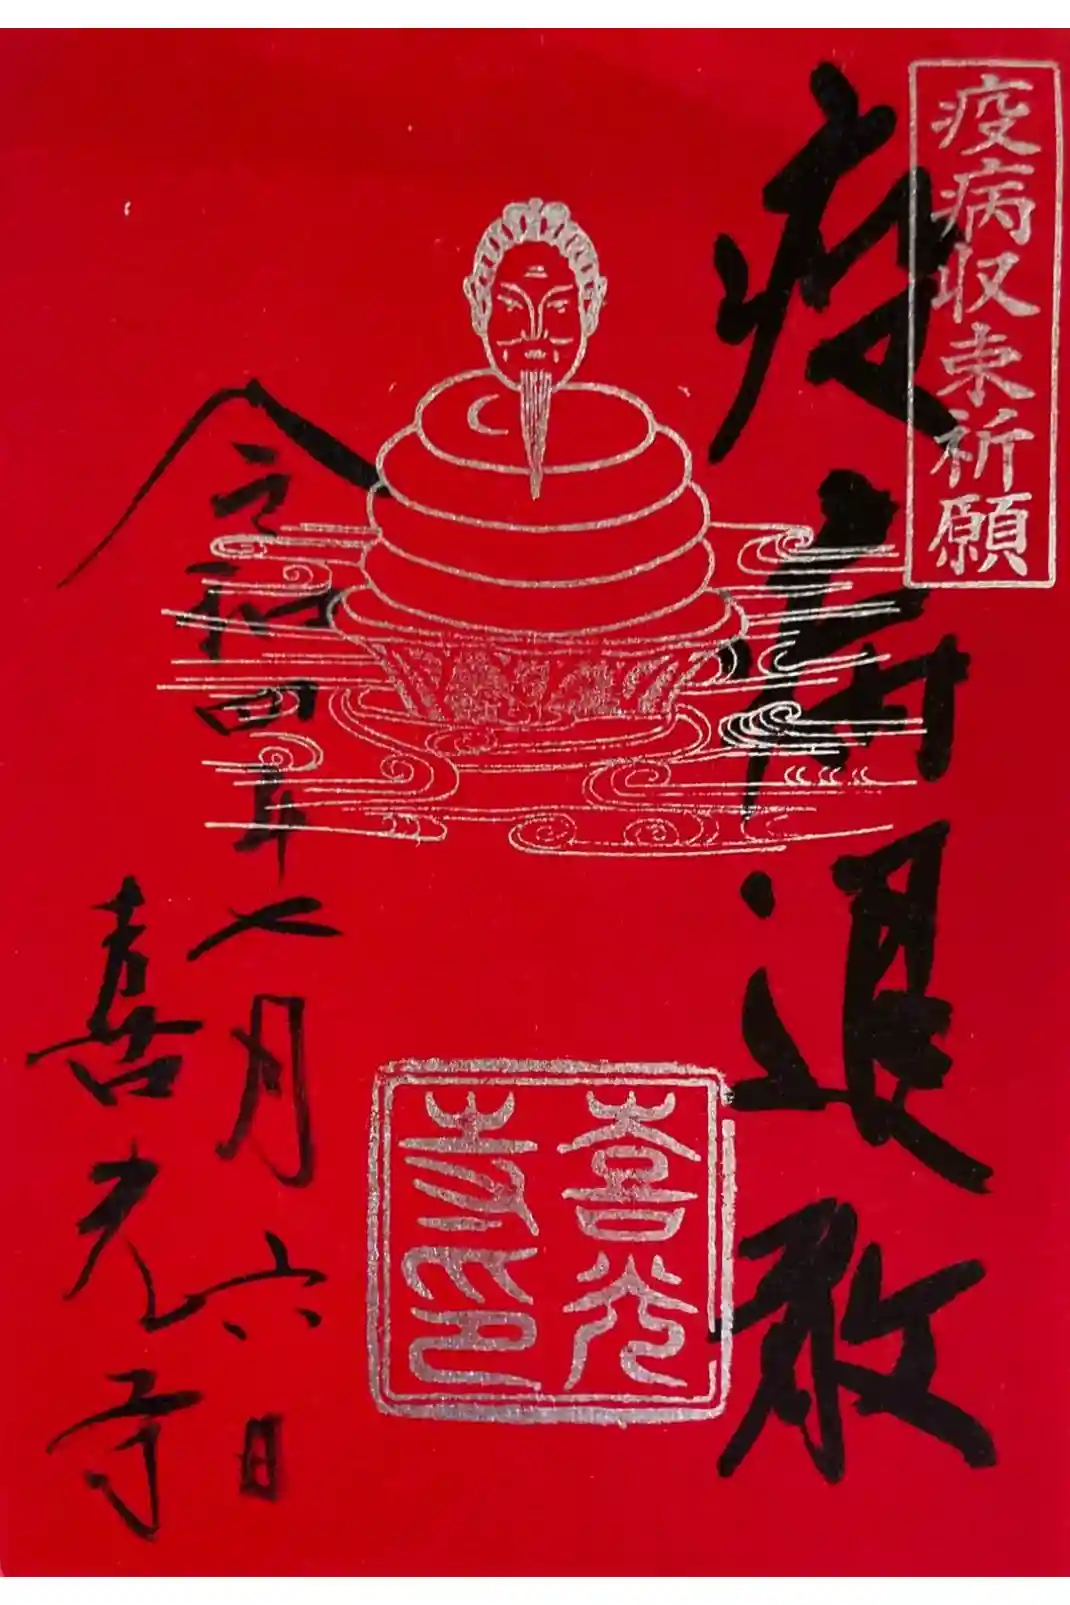 疫病収束祈願
疫病退散
令和四年七月六日
喜光寺
喜光
寺印